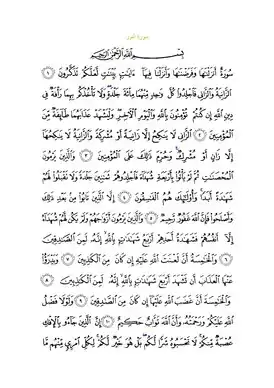 سورة النور
بسم الله الرحمن الرحيم
سورة أنزلناها وفرضناها وأنزلنا فيها ءايات بينات لعلكم تذكرون ١
الزانية والزاني فاجلدوا كل واحد منهما مائة جلدة ولا تأخذكم بهما رأفة في
دين الله إن كنتم تؤمنون بالله واليوم الآخر وليشهد عذابهما طائفة من
المؤمنين ٢ الزاني لا ينكح إلا زانية أو مشركة والزانية لا ينكحها
إلا زان أو مشرك وحرم ذلك على المؤمنين ٣ والذين يرمون
المحصنات ثم لم يأتوا بأربعة شهداء فاجلدوهم ثمانين جلدة ولا تقبلوا لهم
شهادة أبدا وأولئك هم الفاسقون ٤ إلا الذين تابوا من بعد ذلك
وأصلحوا فإن الله غفور رحيم ٥ والذين يرمون أزواجهم ولم يكن لهم شهداء
إلا أنفسهم فشهادة أحدهم أربع شهادات بالله إنه لمن الصادقين ٦
والخامسة أن لعنت الله عليه إن كان من الكاذبين ٧ ويدرؤا
عنها العذاب أن تشهد أربع شهادات بالله إنه لمن الكاذبين ٨
والخامسة أن غضب الله عليها إن كان من الصادقين ٩ ولولا فضل
الله عليكم ورحمته وأن الله تواب حكيم ١٠ إن الذين جاءو بالإفك
عصبة منكم لا تحسبوه شرا لكم بل هو خير لكم لكل امرئ منهم ما